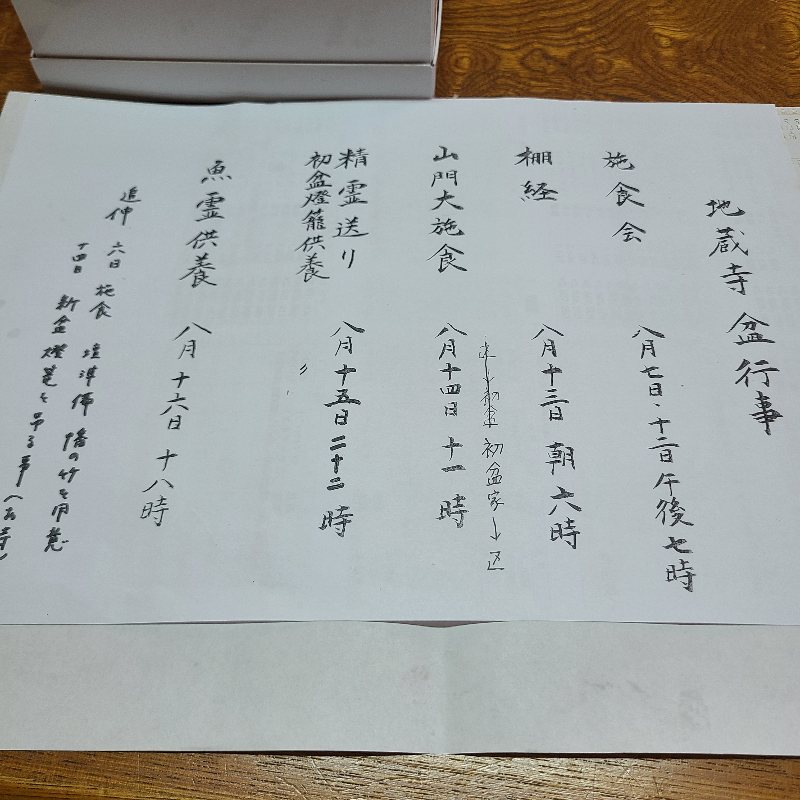 地蔵寺 盆行事
施食会 八月七日・十二日 午後七時
棚経 八月十三日 朝六時
初盆家
山門大施食 八月十四日 十一時
精霊送り 八月十五日 二十二時
初盆燈籠供養 〃
魚霊供養 八月十六日 十八時
追伸 六日 施食 壇準備 幡の竹を用意
十四日 新盆 燈籠を吊る事